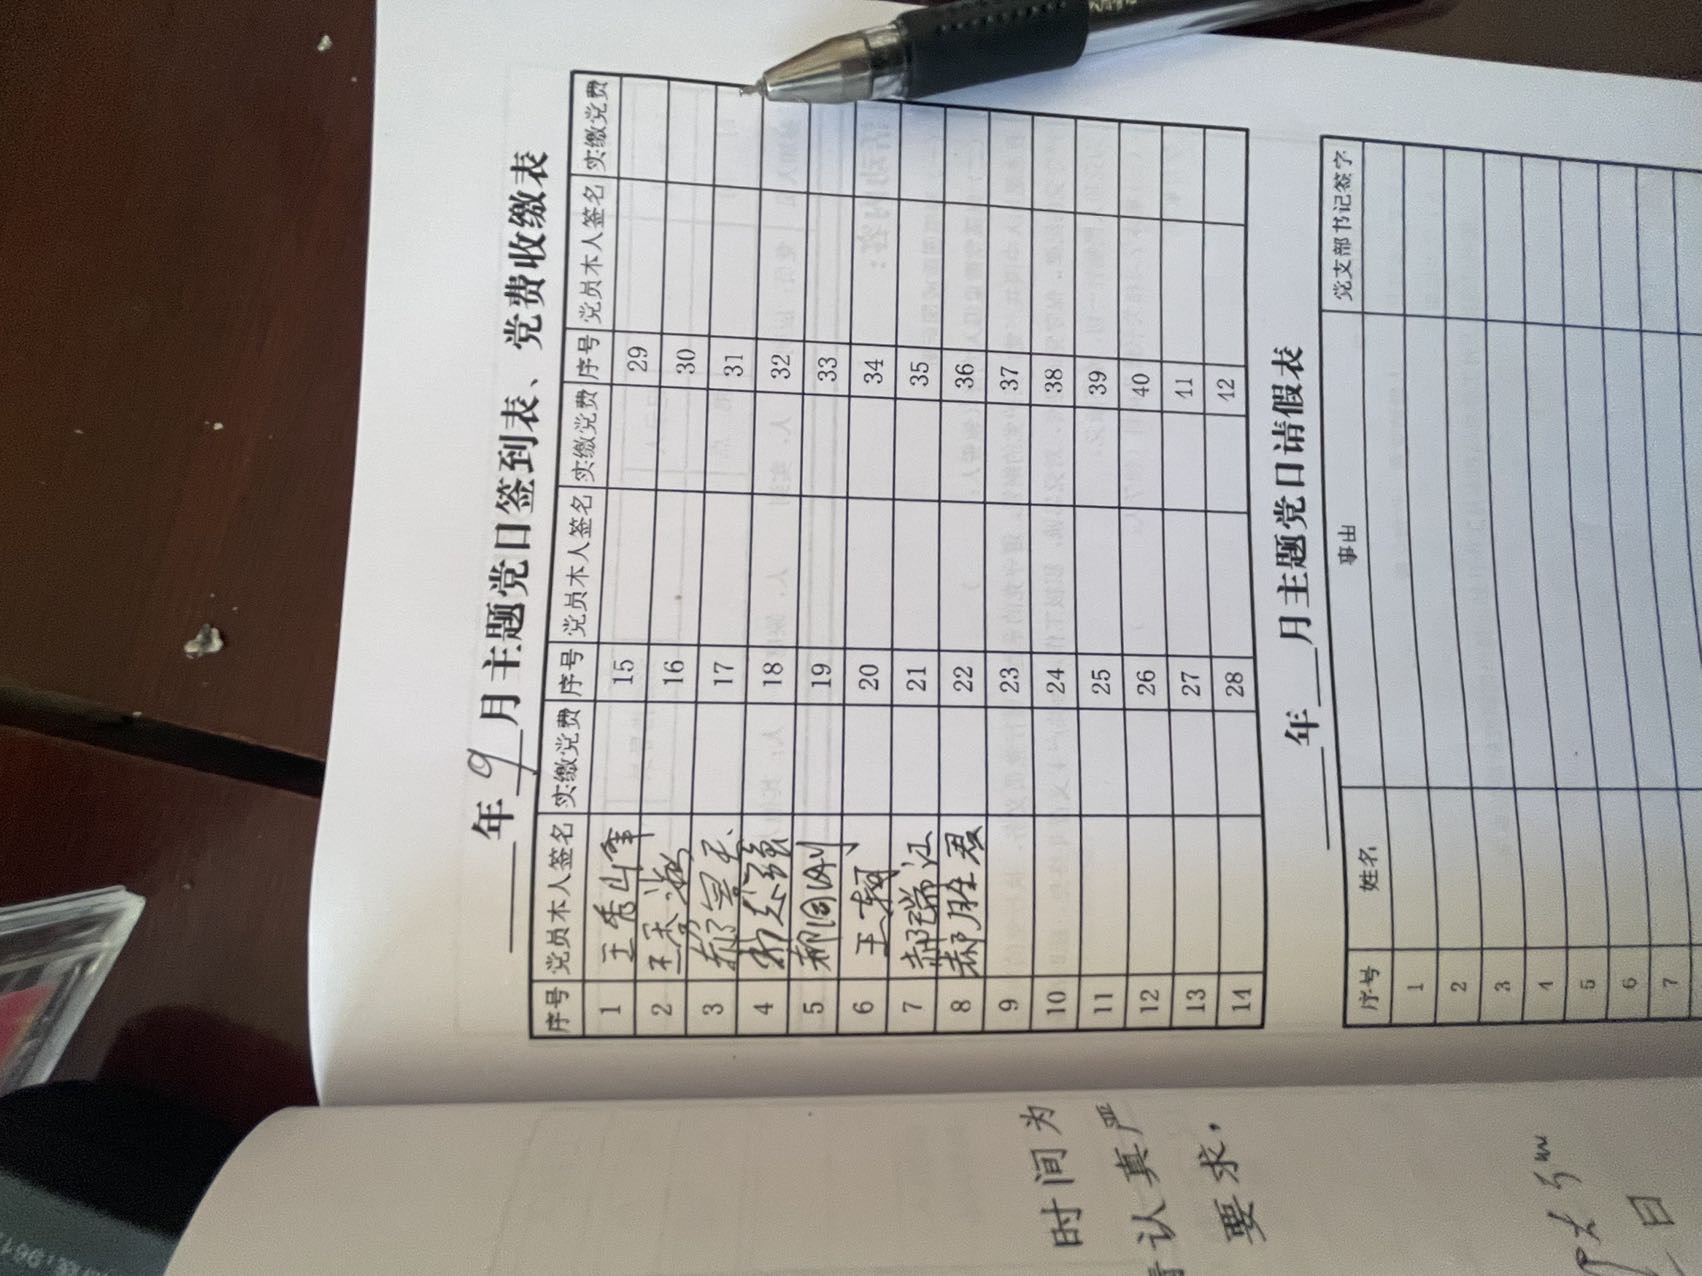 年 9 月主题党日签到表、党费收缴表
序号 党员本人签名 实缴党费 序号 党员本人签名 实缴党费 序号 党员本人签名 实缴党费
1 王秀峰 15 29
2 16 30
3 17 31
4 18 32
5 郝国刚 19 33
6 王朝 20 34
7 郝瑞江 21 35
8 郝胜君 22 36
9 23 37
10 24 38
11 25 39
12 26 40
13 27 41
14 28 42
年 月主题党日请假表
序号 姓名 事由 党支部书记签字
1
2
3
4
5
6
7
时间为
认真严
要求,
日